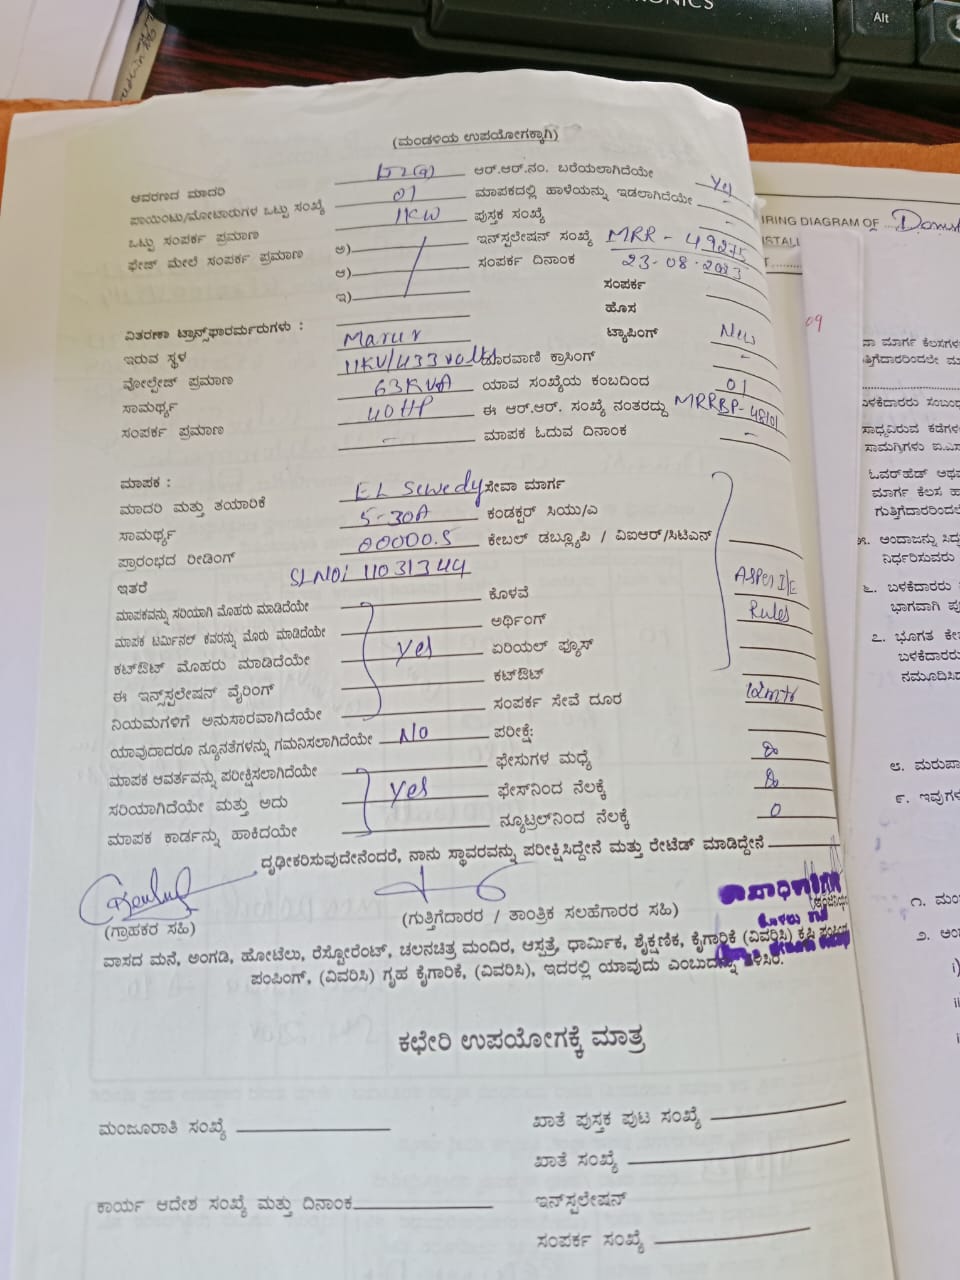 RONICS
Alt
(ಮಂಡಳಿಯ ಉಪಯೋಗಕ್ಕಾಗಿ)
ಆವರಣದ ಮಾದರಿ
ಆರ್.ಆರ್.ನಂ. ಬರೆಯಲಾಗಿದೆಯೇ Yes
ಪಾಯಿಂಟು/ಮೋಟಾರುಗಳ ಒಟ್ಟು ಸಂಖ್ಯೆ 01 ಮಾಪಕದಲ್ಲಿ ಹಾಳೆಯನ್ನು ಇಡಲಾಗಿದೆಯೇ -
ಒಟ್ಟು ಸಂಪರ್ಕ ಪ್ರಮಾಣ 11KW ಪುಸ್ತಕ ಸಂಖ್ಯೆ -
ಫೇಜ್ ಮೇಲೆ ಸಂಪರ್ಕ ಪ್ರಮಾಣ ಅ) ಇನ್‌ಸ್ಟಲೇಷನ್ ಸಂಖ್ಯೆ MRR - 49275
ಆ) ಸಂಪರ್ಕ ದಿನಾಂಕ 23-08-2023
ಇ) ಸಂಪರ್ಕ
ಹೊಸ
ವಿತರಣಾ ಟ್ರಾನ್ಸ್‌ಫಾರ್ಮರುಗಳು : ಟ್ಯಾಪಿಂಗ್ New
ಇರುವ ಸ್ಥಳ Marur ದೂರವಾಣಿ ಕ್ರಾಸಿಂಗ್ -
ವೋಲ್ಟೇಜ್ ಪ್ರಮಾಣ 11KV/433 volts ಯಾವ ಸಂಖ್ಯೆಯ ಕಂಬದಿಂದ 01
ಸಾಮರ್ಥ್ಯ 63KVA ಈ ಆರ್.ಆರ್. ಸಂಖ್ಯೆ ನಂತರದ್ದು MRRBP-
ಸಂಪರ್ಕ ಪ್ರಮಾಣ 40HP ಮಾಪಕ ಓದುವ ದಿನಾಂಕ -
ಮಾಪಕ :
ಮಾದರಿ ಮತ್ತು ತಯಾರಿಕೆ EL Sewedy ಸೇವಾ ಮಾರ್ಗ
ಸಾಮರ್ಥ್ಯ 5-30A ಕಂಡಕ್ಟರ್ ಸಿಯು/ಎ
ಪ್ರಾರಂಭದ ರೀಡಿಂಗ್ 00000.5 ಕೇಬಲ್ ಡಬ್ಲ್ಯೂಪಿ / ವಿಐಆರ್/ಸಿಟಿಎನ್
ಇತರೆ SLNO: 11031344
ಮಾಪಕವನ್ನು ಸರಿಯಾಗಿ ಮೊಹರು ಮಾಡಿದೆಯೇ ಕೊಳವೆ As per I/E
ಮಾಪಕ ಟರ್ಮಿನಲ್ ಕವರನ್ನು ಮೊರು ಮಾಡಿದೆಯೇ ಅರ್ಥಿಂಗ್ Rules
ಕಟ್‌ಔಟ್ ಮೊಹರು ಮಾಡಿದೆಯೇ Yes ಏರಿಯಲ್ ಫ್ಯೂಸ್
ಈ ಇನ್‌ಸ್ಟಲೇಷನ್ ವೈರಿಂಗ್ ಕಟ್‌ಔಟ್
ನಿಯಮಗಳಿಗೆ ಅನುಸಾರವಾಗಿದೆಯೇ ಸಂಪರ್ಕ ಸೇವೆ ದೂರ
ಯಾವುದಾದರೂ ನ್ಯೂನತೆಗಳನ್ನು ಗಮನಿಸಲಾಗಿದೆಯೇ No ಪರೀಕ್ಷೆ:
ಮಾಪಕ ಆವರ್ತವನ್ನು ಪರೀಕ್ಷಿಸಲಾಗಿದೆಯೇ ಫೇಸುಗಳ ಮಧ್ಯೆ
ಸರಿಯಾಗಿದೆಯೇ ಮತ್ತು ಅದು Yes ಫೇಸ್‌ನಿಂದ ನೆಲಕ್ಕೆ
ಮಾಪಕ ಕಾರ್ಡನ್ನು ಹಾಕಿದಯೇ ನ್ಯೂಟ್ರಲ್‌ನಿಂದ ನೆಲಕ್ಕೆ 0
ದೃಢೀಕರಿಸುವುದೇನೆಂದರೆ, ನಾನು ಸ್ಥಾವರವನ್ನು ಪರೀಕ್ಷಿಸಿದ್ದೇನೆ ಮತ್ತು ರೇಟೆಡ್ ಮಾಡಿದ್ದೇನೆ
(ಗ್ರಾಹಕರ ಸಹಿ) (ಗುತ್ತಿಗೆದಾರರ / ತಾಂತ್ರಿಕ ಸಲಹೆಗಾರರ ಸಹಿ)
ವಾಸದ ಮನೆ, ಅಂಗಡಿ, ಹೋಟೆಲು, ರೆಸ್ಟೋರೆಂಟ್, ಚಲನಚಿತ್ರ ಮಂದಿರ, ಆಸ್ಪತ್ರೆ, ಧಾರ್ಮಿಕ, ಶೈಕ್ಷಣಿಕ, ಕೈಗಾರಿಕೆ (ವಿವರಿಸಿ) ಕೃಷಿ
ಪಂಪಿಂಗ್, (ವಿವರಿಸಿ) ಗೃಹ ಕೈಗಾರಿಕೆ, (ವಿವರಿಸಿ), ಇದರಲ್ಲಿ ಯಾವುದು ಎಂಬುದನ್ನು ತಿಳಿಸಿರಿ.
ಕಛೇರಿ ಉಪಯೋಗಕ್ಕೆ ಮಾತ್ರ
ಮಂಜೂರಾತಿ ಸಂಖ್ಯೆ ಖಾತೆ ಪುಸ್ತಕ ಪುಟ ಸಂಖ್ಯೆ
ಖಾತೆ ಸಂಖ್ಯೆ
ಕಾರ್ಯ ಆದೇಶ ಸಂಖ್ಯೆ ಮತ್ತು ದಿನಾಂಕ ಇನ್‌ಸ್ಪಲೇಷನ್
ಸಂಪರ್ಕ ಸಂಖ್ಯೆ
IRING DIAGRAM OF
STALL
09